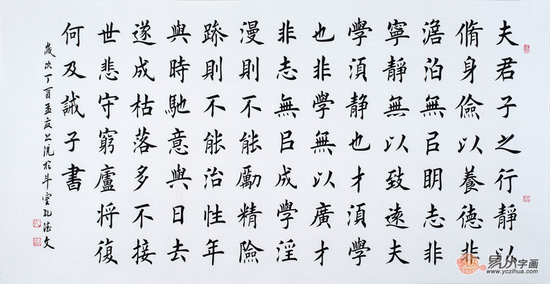 夫君子之行靜以
脩身儉以養德非
澹泊無㠯明志非
寧靜無以致遠夫
學須靜也才須學
也非學無以廣才
非志無㠯成學淫
漫則不能勵精險
躁則不能治性年
與時馳意與日去
遂成枯落多不接
世悲守窮廬將復
何及誡子書
歲次丁酉孟夏上浣於斗室孔 文
易从字画
www.yczihua.com